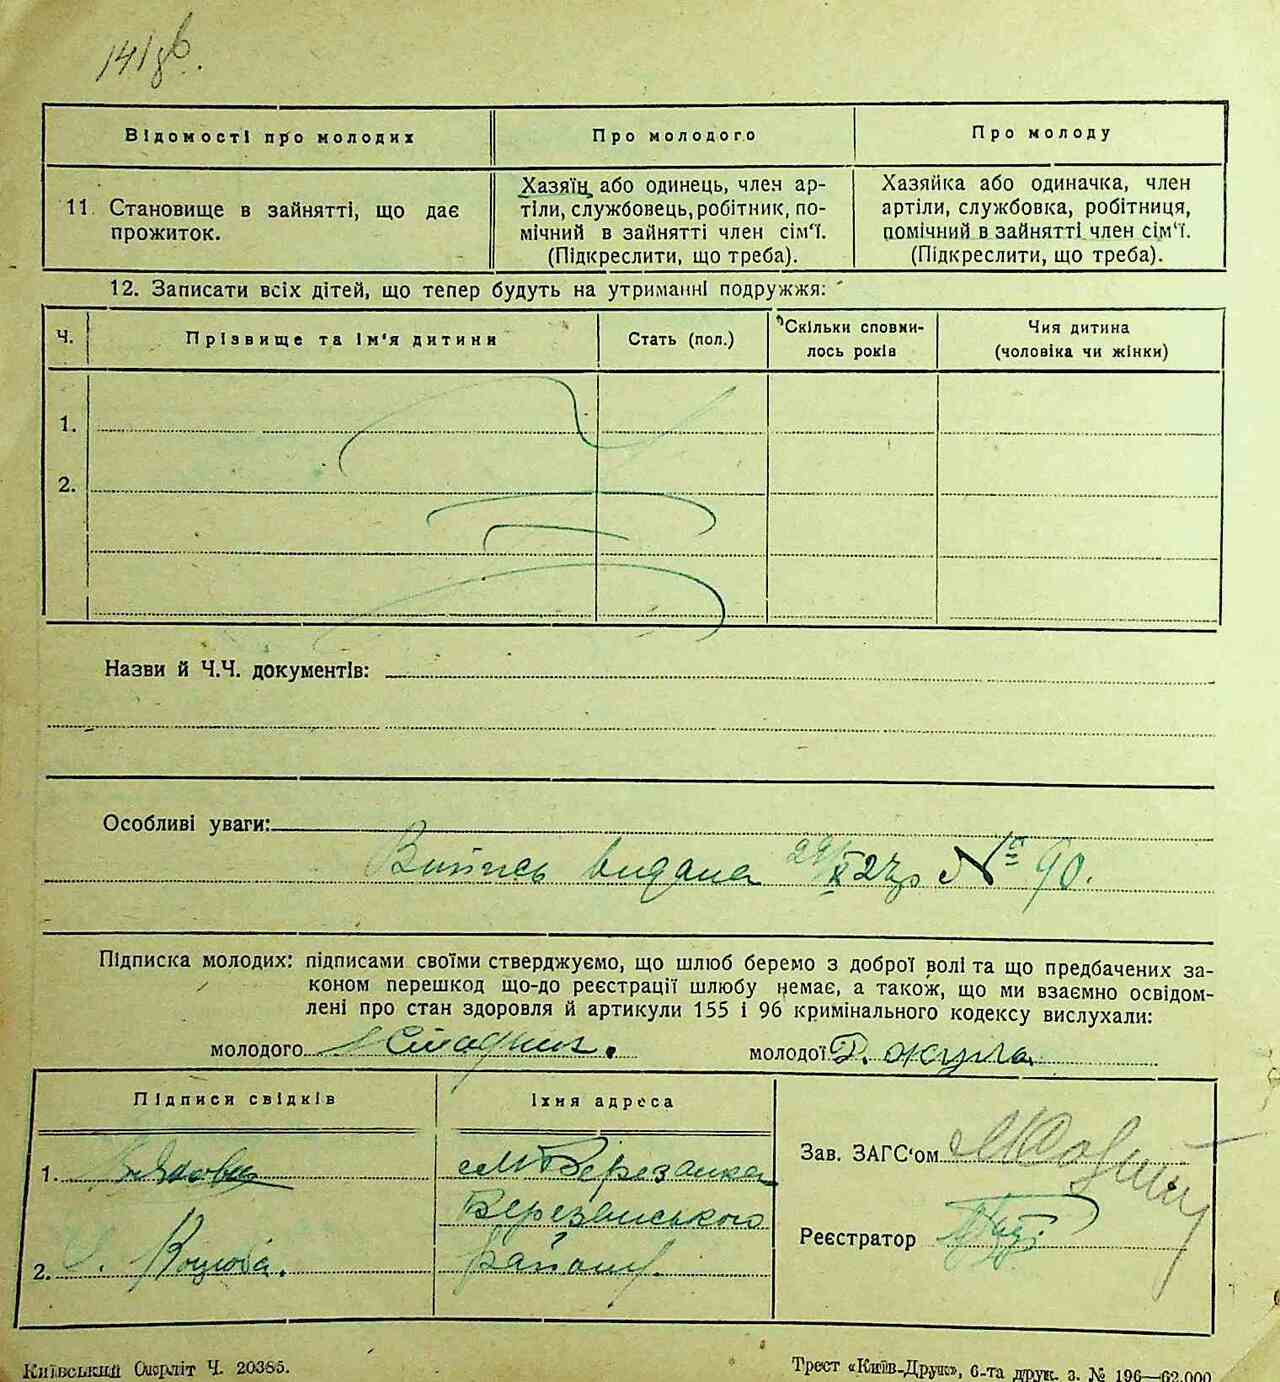 141 зв.
Відомості про молодих
Про молодого
Про молоду
11. Становище в зайнятті, що дає
прожиток.
Хазяїн або одинець, член ар-
тіли, службовець, робітник, по-
мічний в зайнятті член сім'ї.
(Підкреслити, що треба).
Хазяйка або одиначка, член
артіли, службовка, робітниця,
помічний в зайнятті член сім'ї.
(Підкреслити, що треба).
12. Записати всіх дітей, що тепер будуть на утриманні подружжя:
Ч.
Прізвище та ім'я дитини
Стать (пол.)
Скільки сповни-
лось років
Чия дитина
(чоловіка чи жінки)
1.
2.
Назви й Ч.Ч. документів:
Особливі уваги:
Випись видана 27р № 90.
Підписка молодих: підписами своїми стверджуємо, що шлюб беремо з доброї волі та що предбачених за-
коном перешкод що-до реєстрації шлюбу немає, а також, що ми взаємно освідом-
лені про стан здоровля й артикули 155 і 96 кримінального кодексу вислухали:
молодого
молодої
Підписи свідків
Їхня адреса
1.
м Березанка
Березанського
2.
району.
Зав. ЗАГС'ом
Реєстратор
Київський Окрліт Ч. 20385.
Трест «Київ-Друк», 6-та друк. з. № 196—62.000